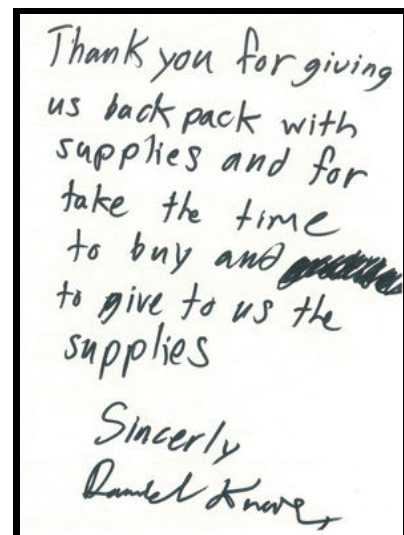 Thank you for giving
us back pack with
supplies and for
take the time
to buy and
to give to us the
supplies
Sincerly
Daniel